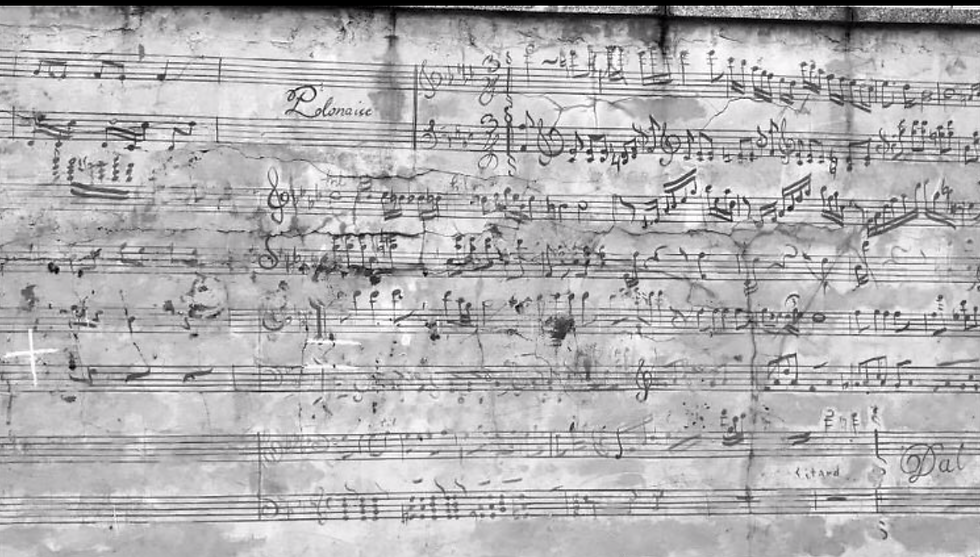 Polonaise
ritard
Dal